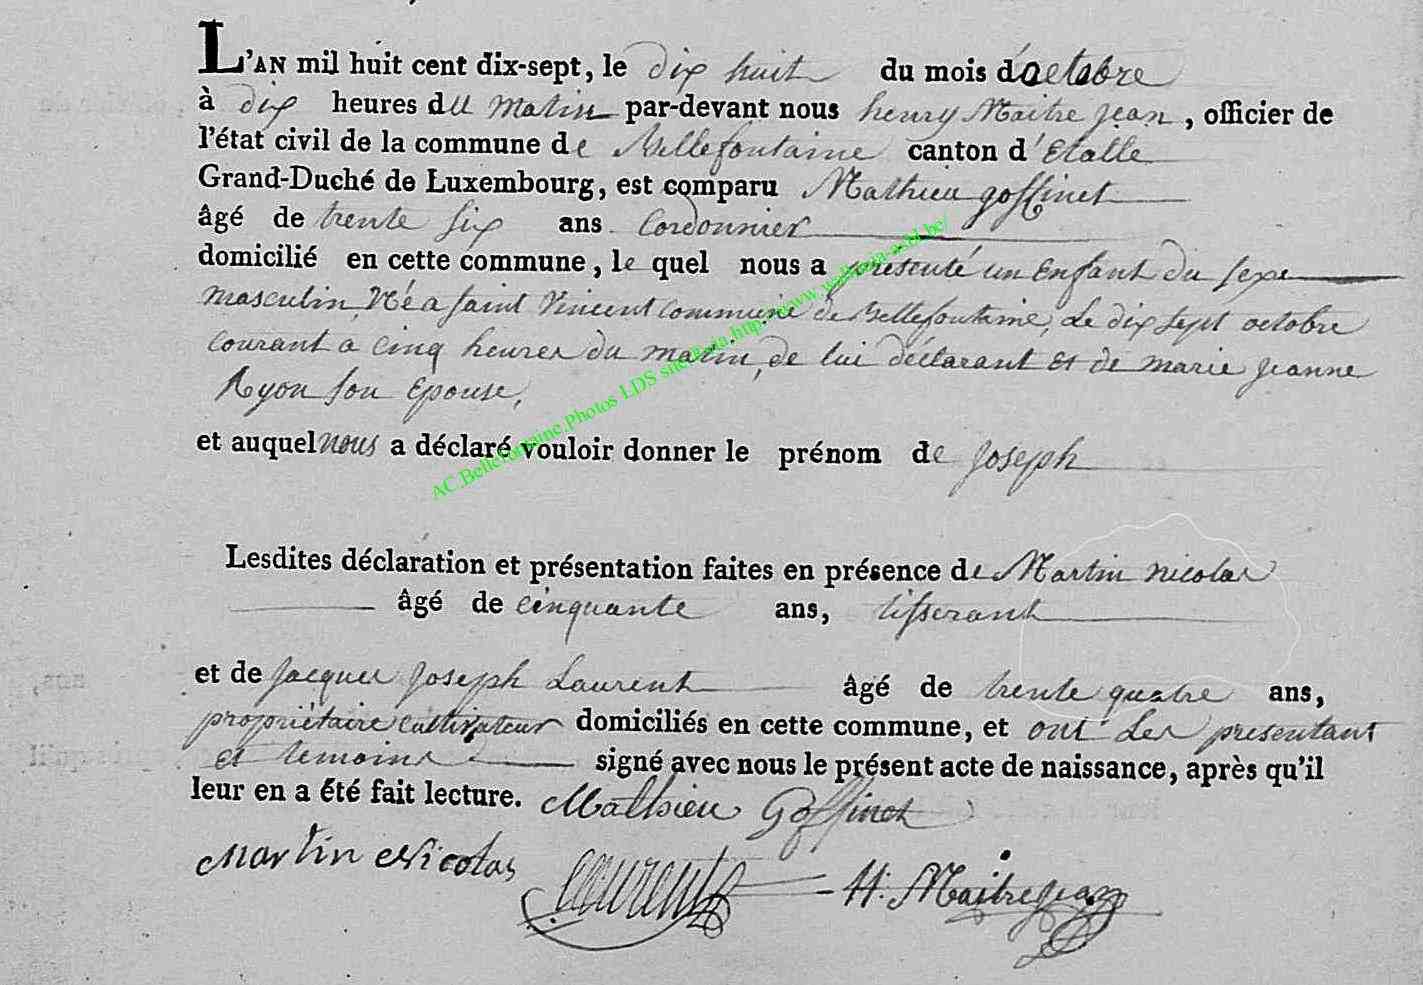 L'AN mil huit cent dix-sept, le dix huit du mois d'octobre
à dix heures du matin par-devant nous henry Maitre jean, officier de
l'état civil de la commune de Bellefontaine canton d'Etalle
Grand-Duché de Luxembourg, est comparu Mathieu goffinet
âgé de trente six ans Cordonnier
domicilié en cette commune, le quel nous a presenté un Enfant du sexe
masculin, Né a saint Vincent commune de Bellefontaine, Le dix sept octobre
courant a cinq heures du matin, de lui déclarant Et de marie jeanne
Ryon son Epouse,
et auquel nous a déclaré vouloir donner le prénom de joseph
Lesdites déclaration et présentation faites en présence de Martin nicolas
âgé de cinquante ans, tisserant
et de jacques joseph Laurent âgé de trente quatre ans,
propriétaire cultivateur domiciliés en cette commune, et ont Les presentant
et temoins signé avec nous le présent acte de naissance, après qu'il
leur en a été fait lecture. Mathieu Goffinet
Martin Nicolas Laurent H: Maitrejean
AC.Bellefontaine.Photos LDS